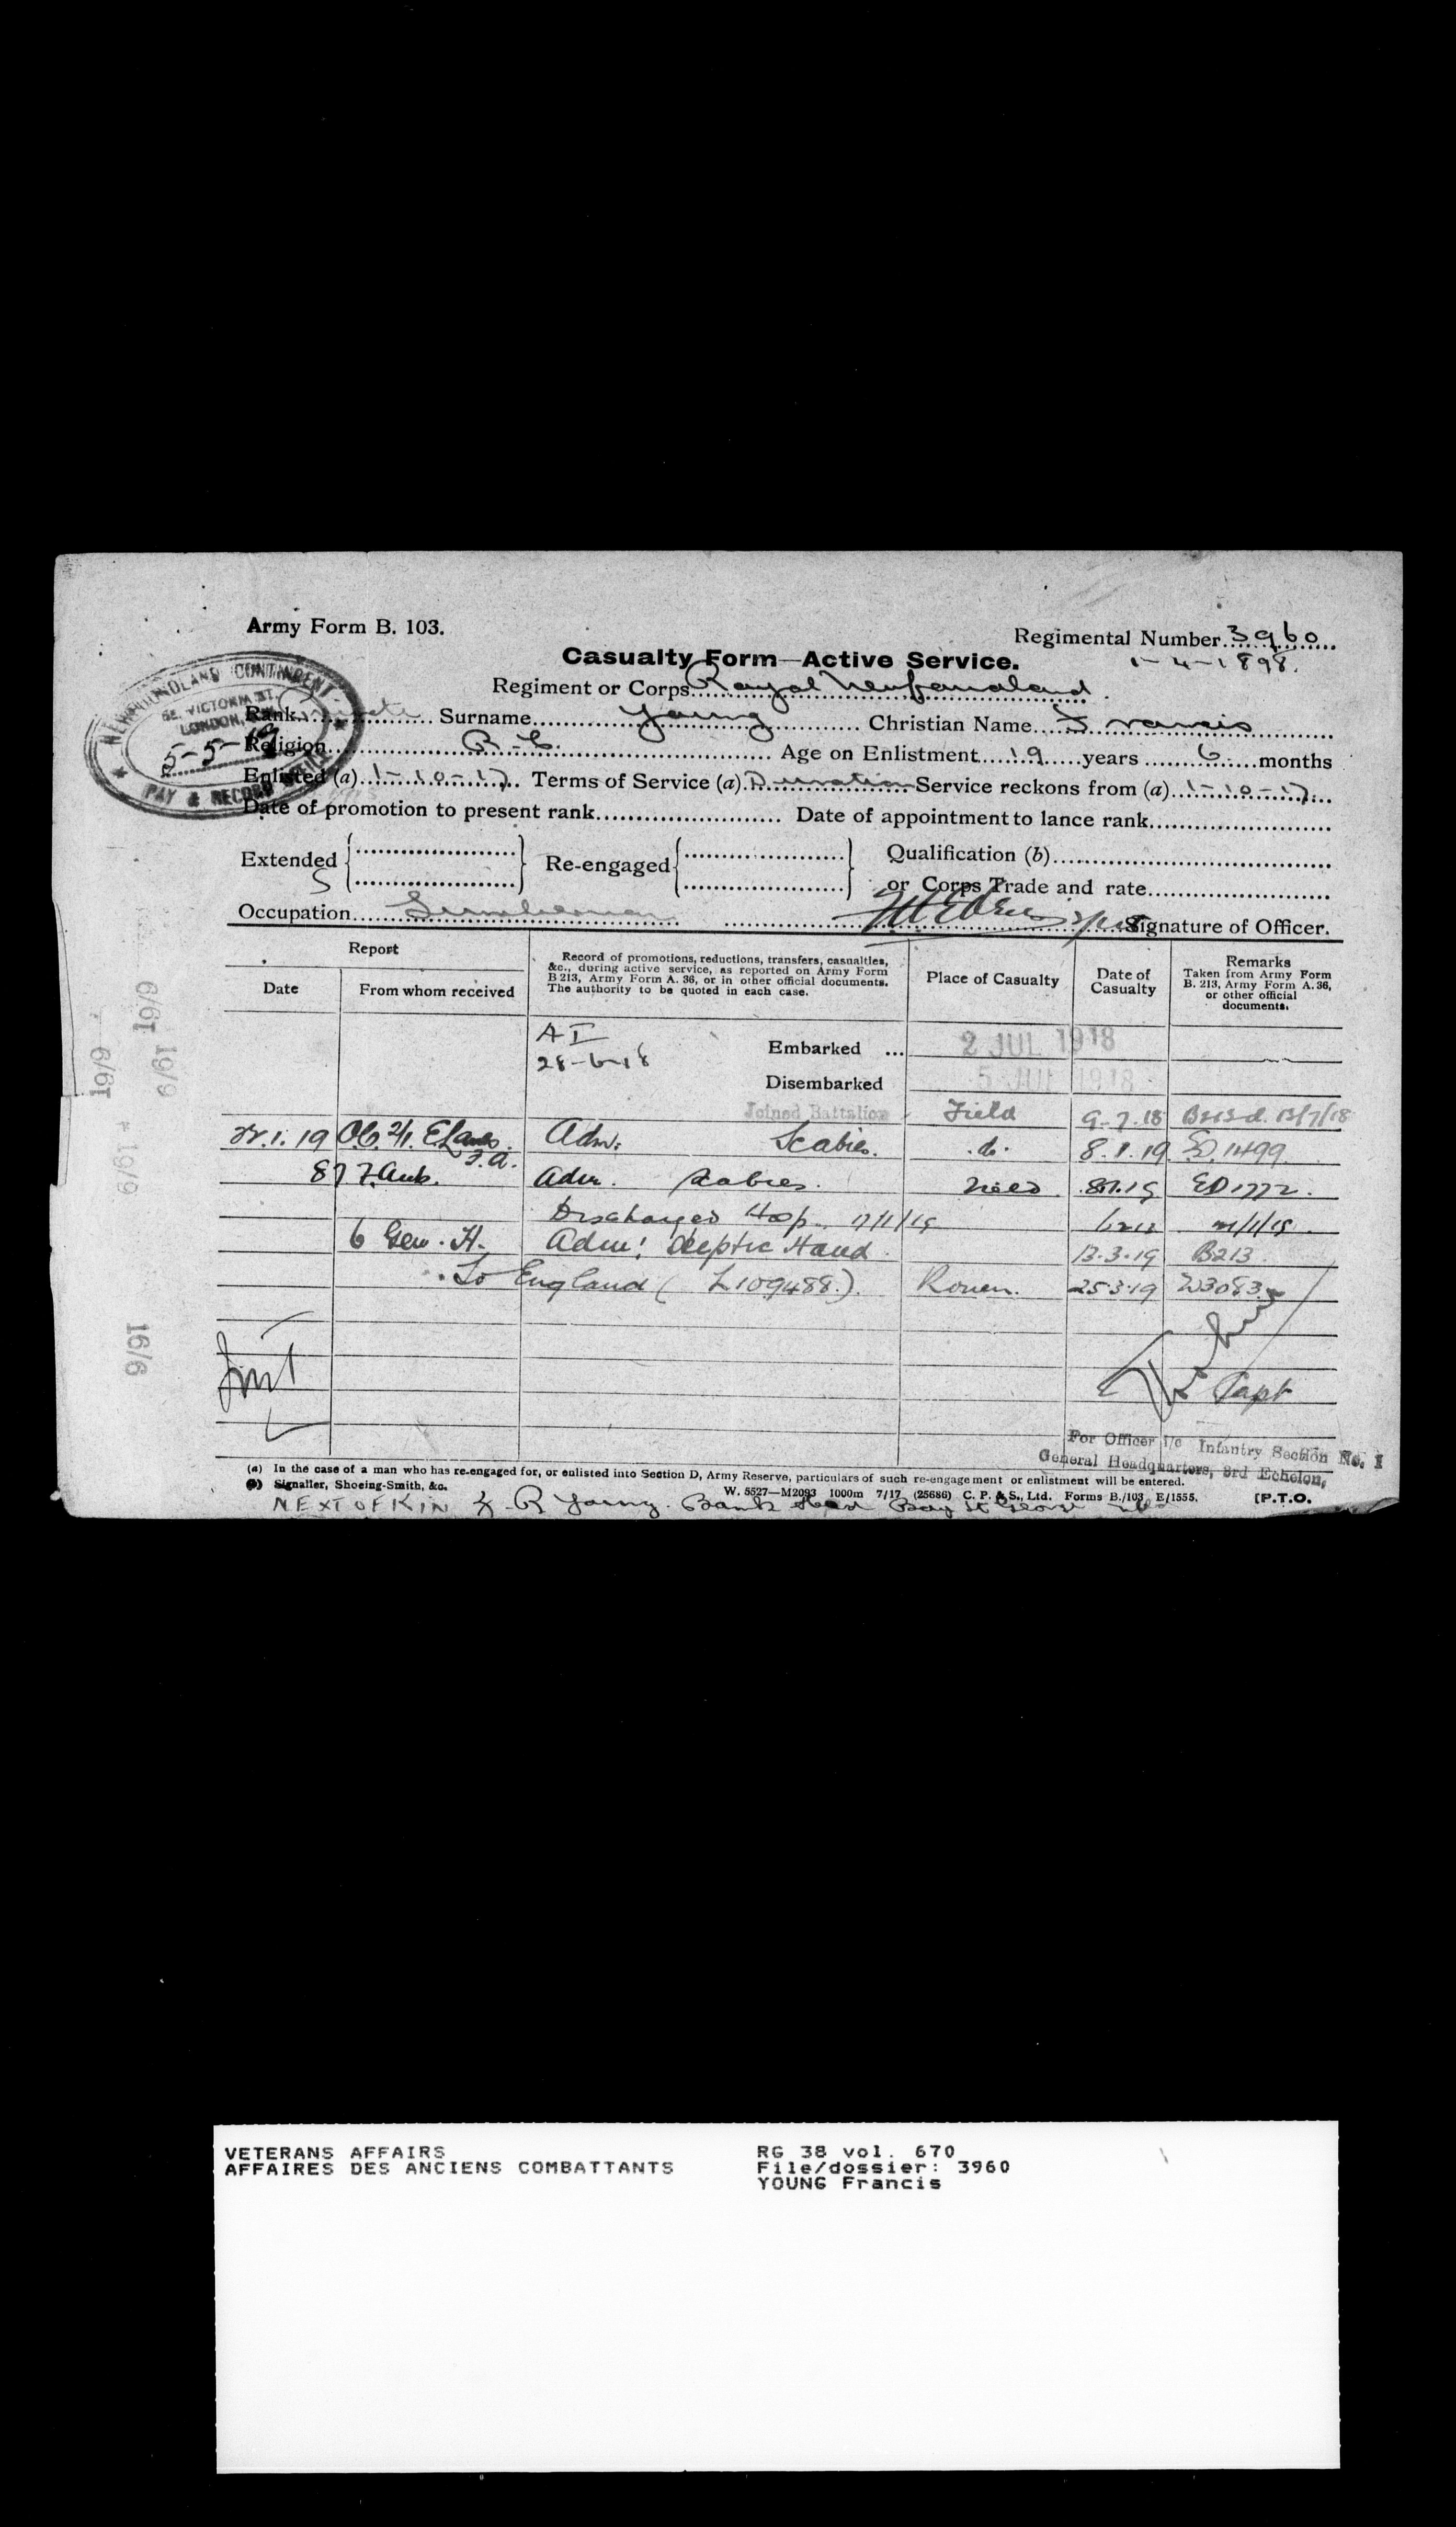 Army Form B. 103.
Regimental Number 3960
Casualty Form—Active Service.
1-4-1898.
Regiment or Corps Royal Newfoundland
NEWFOUNDLAND CONTINGENT
58, VICTORIA ST.
LONDON,
5-5-19
PAY & RECORD OFFICE
Rank Private Surname Young Christian Name Francis
Religion R.C. Age on Enlistment 19 years 6 months
Enlisted (a) 1-10-17 Terms of Service (a) Duration Service reckons from (a) 1-10-17
Date of promotion to present rank Date of appointment to lance rank
Extended Re-engaged Qualification (b)
or Corps Trade and rate
Occupation Signature of Officer.
Report
Date From whom received
Record of promotions, reductions, transfers, casualties, &c., during active service, as reported on Army Form B 213, Army Form A. 36, or in other official documents. The authority to be quoted in each case.
Place of Casualty
Date of Casualty
Remarks
Taken from Army Form B. 213, Army Form A. 36, or other official documents.
A I
28-6-18
Embarked ... 2 JUL 1918
Disembarked 5 JUL 1918
Joined Battalion Field 9.7.18 B213d. 13/7/18
22.1.19 OC 2/1. E Lancs. F.A. Adm: Scabies. do. 8.1.19 ED. 1499
87 F. Amb. Adm. Scabies. Field 8.1.19 ED 1772.
Discharged Hosp. 17/1/19
6 Gen. H. Adm: Septic Hand 13.3.19 B213.
To England ( L 109488.). Rouen. 25.3.19 W3083
Capt
For Officer i/c Infantry Section No. 1
General Headquarters, 3rd Echelon,
(a) In the case of a man who has re-engaged for, or enlisted into Section D, Army Reserve, particulars of such re-engagement or enlistment will be entered.
(b) Signaller, Shoeing-Smith, &c.
W. 5527—M2093 1000m 7/17 (25686) C. P. & S., Ltd. Forms B./103 E/1555.
[P.T.O.
NEXT OF KIN R Young. Bank Head Bay St George
19/9
19/9
19/9
19/9
19/9
VETERANS AFFAIRS
AFFAIRES DES ANCIENS COMBATTANTS
RG 38 vol. 670
File/dossier: 3960
YOUNG Francis